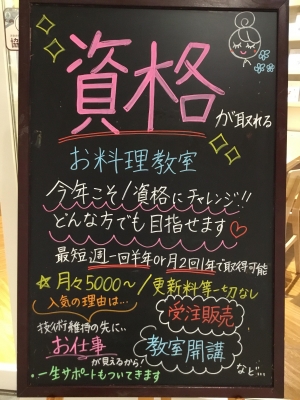 資格
が取れる
お料理教室
今年こそ!資格にチャレンジ!!
どんな方でも目指せます♡
最短週一回半年or月2回1年で取得可能
☆月々5000～/更新料等一切なし
人気の理由は…
技術維持の先に…
お仕事
が見えるから!
受注販売
教室開講
など…
・一生サポートもついてきます